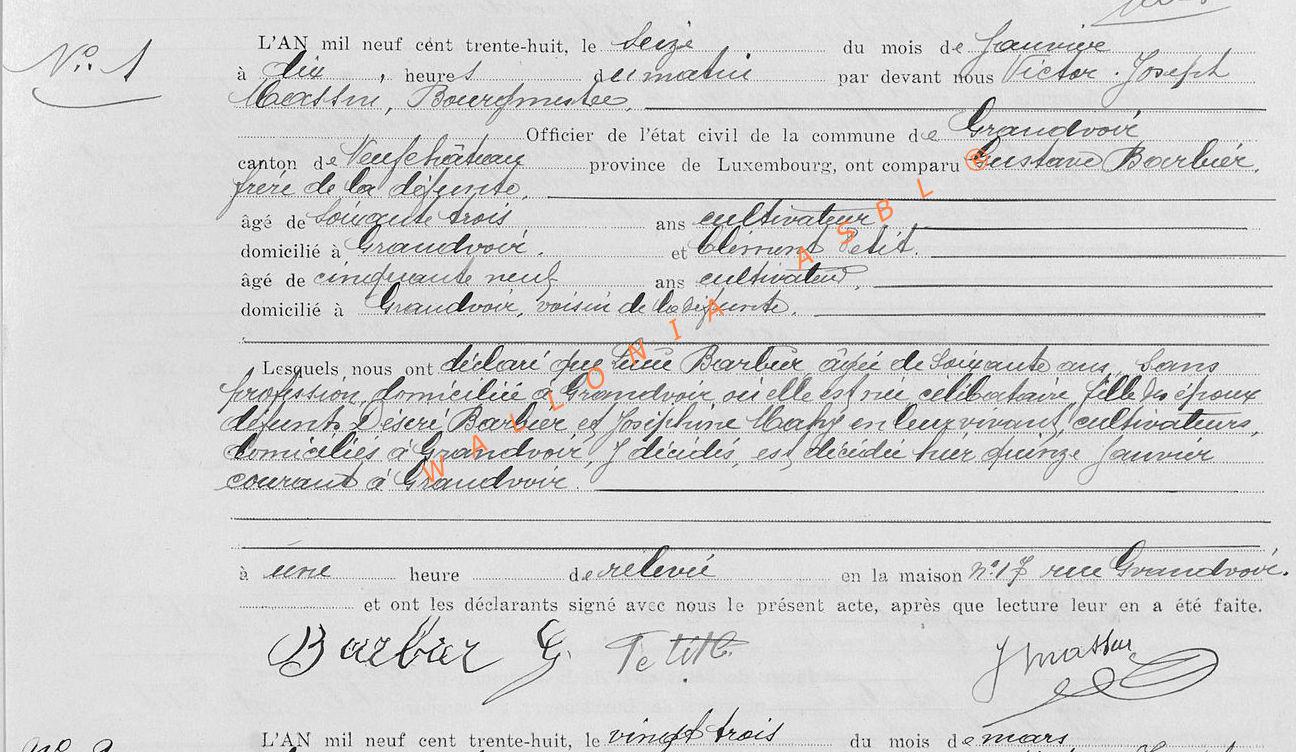 N° 1
L'AN mil neuf cent trente-huit, le Seize du mois de Janvier
à dix heures du matin par devant nous Victor Joseph
Massin, Bourgmestre,
Officier de l'état civil de la commune de Grandvoir
canton de Neufchâteau province de Luxembourg, ont comparu Gustave Barbier,
frère de la défunte,
âgé de soixante trois ans cultivateur
domicilié à Grandvoir, et Clément Petit,
âgé de cinquante neuf ans cultivateur,
domicilié à Grandvoir, voisin de la défunte,
Lesquels nous ont déclaré que Barbier, âgée de soixante ans, sans
profession, domiciliée à Grandvoir où elle est née, célibataire, fille des époux
défunts Désiré Barbier et Joséphine Mahy en leur vivant, cultivateurs,
domiciliés à Grandvoir, y décédés, est décédée hier quinze Janvier
courant à Grandvoir.
à une heure de relevée en la maison n° 17 rue Grandvoir.
et ont les déclarants signé avec nous le présent acte, après que lecture leur en a été faite.
Barbier G. Petit C. J Massin
L'AN mil neuf cent trente-huit, le vingt trois du mois de mars
WALLONIA ASBL ©